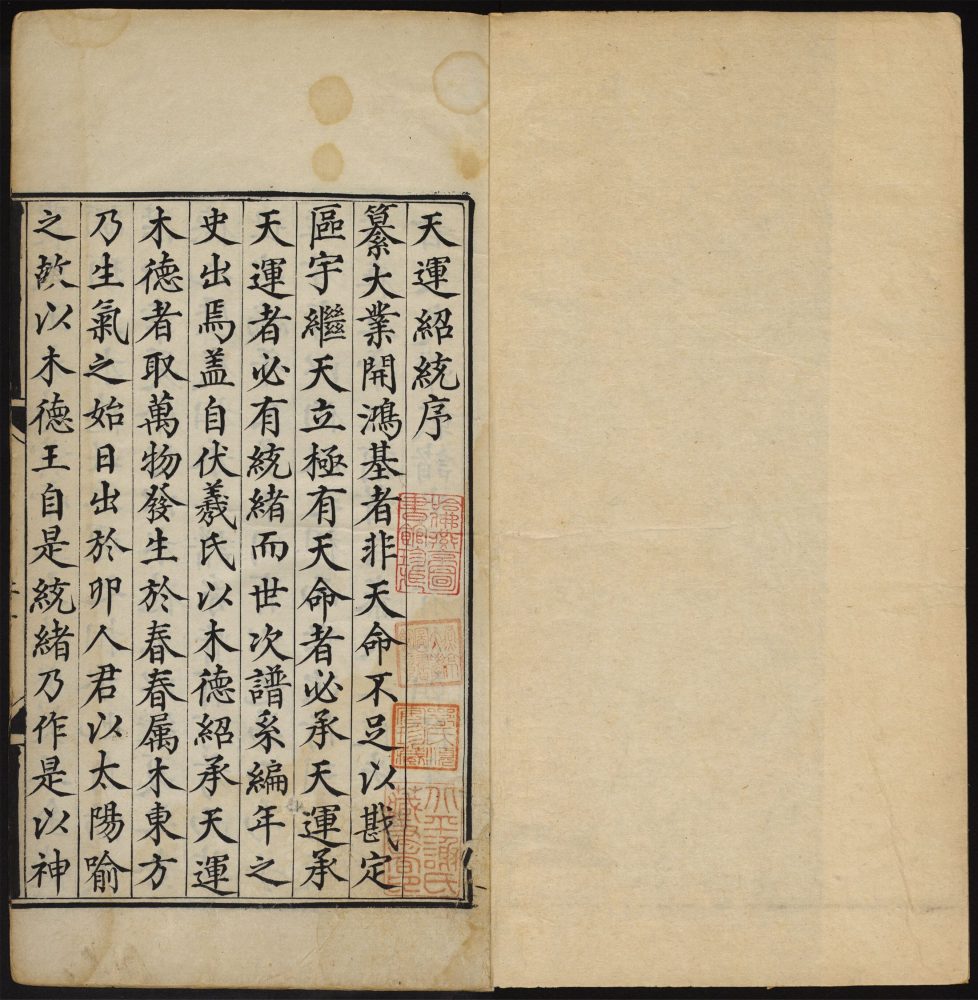 天運紹統序
纂大業開鴻基者非天命不足以戡定
區宇繼天立極有天命者必承天運承
天運者必有統緒而世次譜系編年之
史出焉盖自伏羲氏以木德紹承天運
木德者取萬物發生於春春属木東方
乃生氣之始日出於卯人君以太陽喻
之故以木德王自是統緒乃作是以神
哈佛燕京圖
書館珍藏